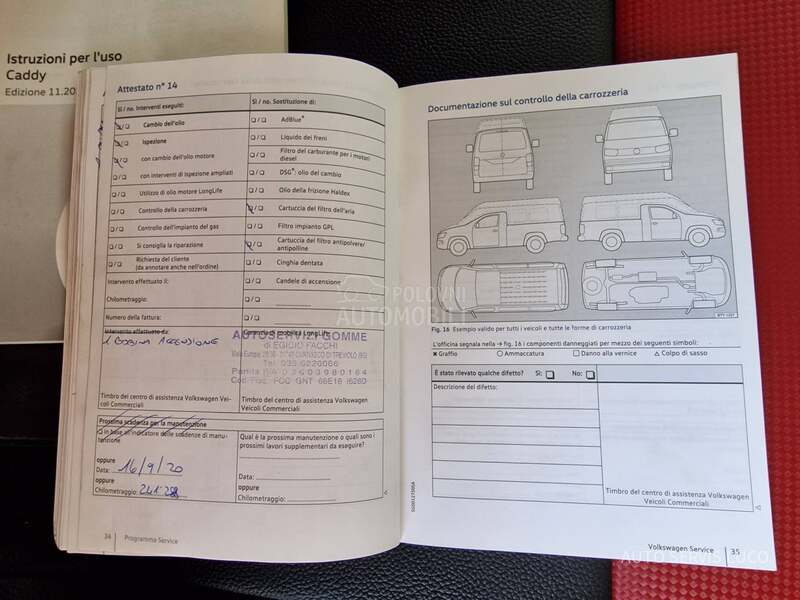 Istruzioni per l'uso
Caddy
Edizione 11.20
Attestato n° 14
Sì / no. Interventi eseguiti:
Sì / no. Sostituzione di:
Cambio dell'olio
AdBlue®
Ispezione
Liquido dei freni
con cambio dell'olio motore
Filtro del carburante per i motori
diesel
con interventi di Ispezione ampliati
DSG®: olio del cambio
Utilizzo di olio motore LongLife
Olio della frizione Haldex
Controllo della carrozzeria
Cartuccia del filtro dell'aria
Controllo dell'impianto del gas
Filtro impianto GPL
Si consiglia la riparazione
Cartuccia del filtro antipolvere/
antipolline
Richiesta del cliente
(da annotare anche nell'ordine)
Cinghia dentata
Intervento effettuato il:
Candele di accensione
Chilometraggio:
Numero della fattura:
Intervento effettuato da:
Garanzia di mobilità LongLife
1 BOBINA ACCENSIONE
AUTOSERVIZI GOMME
di EGIDIO FACCHI
Tel. 035
Timbro del centro di assistenza Volkswagen Vei-
coli Commerciali
Timbro del centro di assistenza Volkswagen
Veicoli Commerciali
Prossima scadenza per la manutenzione
in base all'indicatore delle scadenze di manu-
tenzione
Qual è la prossima manutenzione o quali sono i
prossimi lavori supplementari da eseguire?
oppure
Data: 16/9/20
oppure
Chilometraggio:
Data:
oppure
Chilometraggio:
34
Programma Service
Documentazione sul controllo della carrozzeria
Fig. 16 Esempio valido per tutti i veicoli e tutte le forme di carrozzeria
L'officina segnala nella → fig. 16 i componenti danneggiati per mezzo dei seguenti simboli:
Graffio
Ammaccatura
Danno alla vernice
Colpo di sasso
È stato rilevato qualche difetto?
Sì:
No:
Descrizione del difetto:
Timbro del centro di assistenza Volkswagen
Veicoli Commerciali
Volkswagen Service
35
POLOVNI
AUTOMOBILI
AUTO SERVIS LOCO